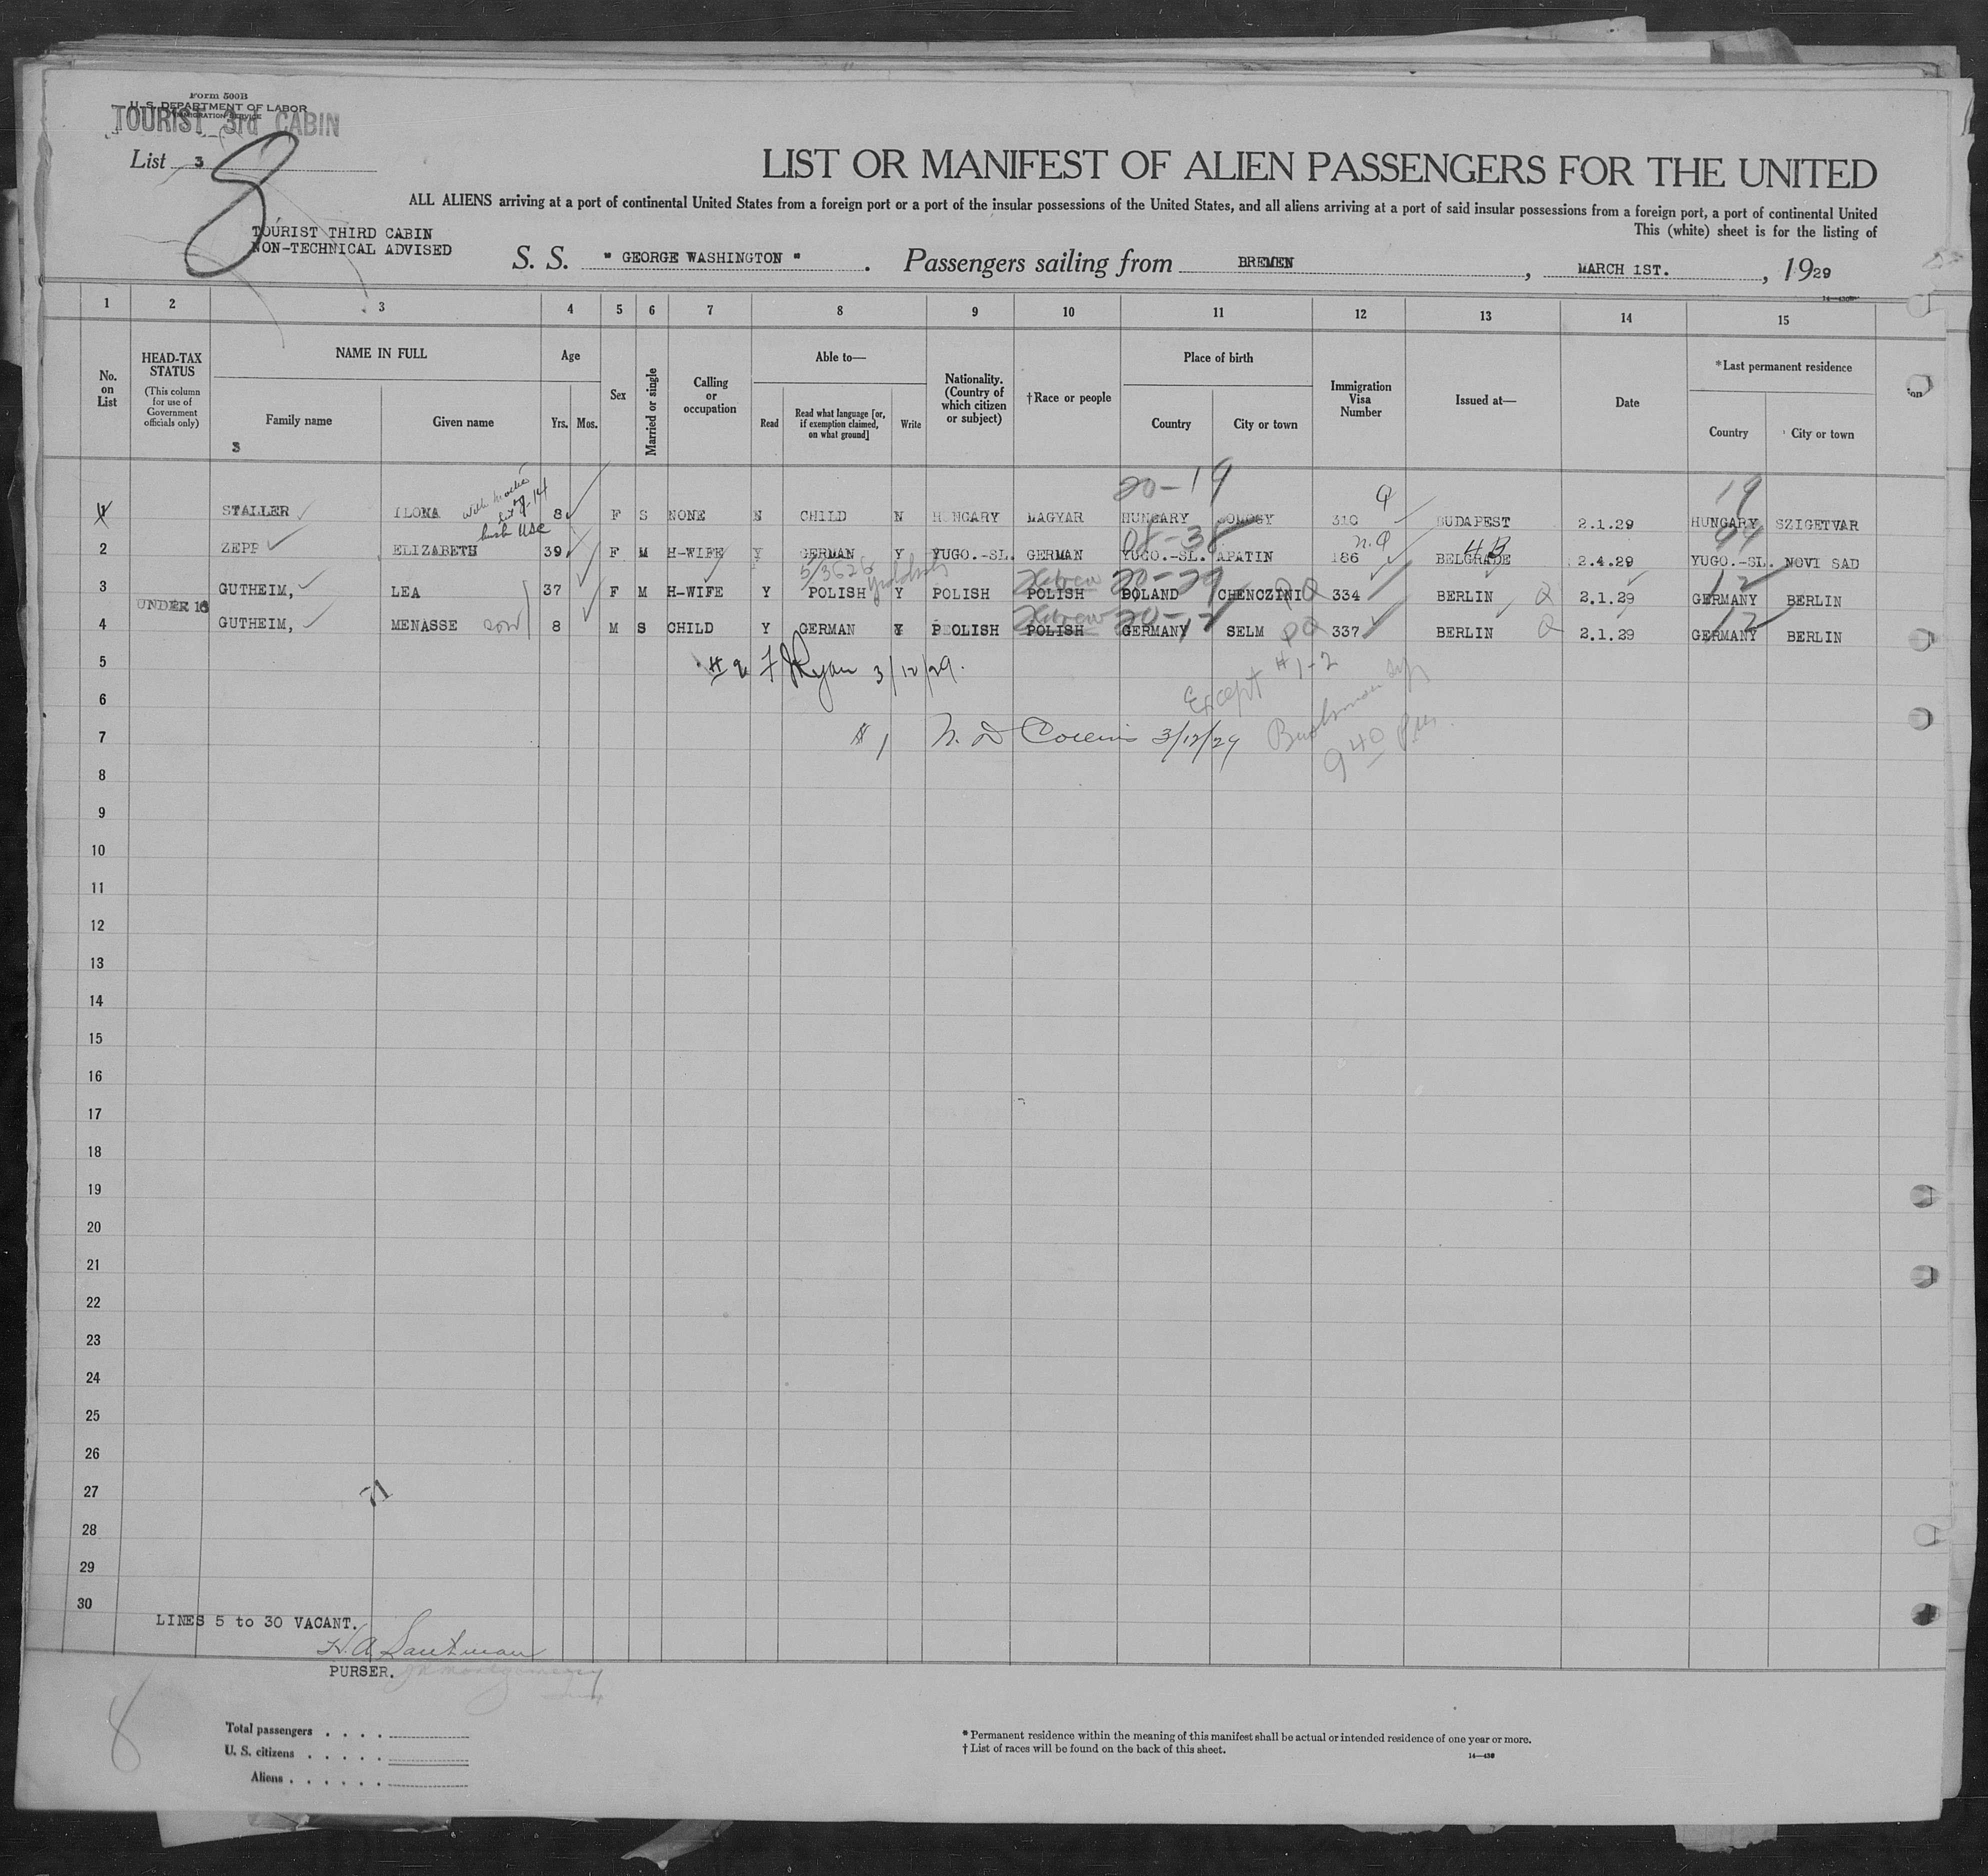 Form 500B
U. S. DEPARTMENT OF LABOR
IMMIGRATION SERVICE
TOURIST 3rd CABIN
List 3
8
LIST OR MANIFEST OF ALIEN PASSENGERS FOR THE UNITED
ALL ALIENS arriving at a port of continental United States from a foreign port or a port of the insular possessions of the United States, and all aliens arriving at a port of said insular possessions from a foreign port, a port of continental United
This (white) sheet is for the listing of
TOURIST THIRD CABIN
NON-TECHNICAL ADVISED
S. S. " GEORGE WASHINGTON " . Passengers sailing from BREMEN , MARCH 1ST. , 1929
1 2 3 4 5 6 7 8 9 10 11 12 13 14 15
No. on List
HEAD-TAX STATUS
(This column for use of Government officials only)
NAME IN FULL
Family name
Given name
Age
Yrs.
Mos.
Sex
Married or single
Calling or occupation
Able to—
Read
Read what language [or, if exemption claimed, on what ground]
Write
Nationality. (Country of which citizen or subject)
†Race or people
Place of birth
Country
City or town
Immigration Visa Number
Issued at—
Date
*Last permanent residence
Country
City or town
3
20-19 Q 19
1 STALLER ILONA with mother 8 F S NONE N CHILD N HUNGARY MAGYAR HUNGARY 310 BUDAPEST 2.1.29 HUNGARY SZIGETVAR
08-38 n.Q HB 94
2 ZEPP ELIZABETH 39 F M H-WIFE Y GERMAN Y YUGO.-SL. GERMAN YUGO.-SL. APATIN 186 BELGRADE 2.4.29 YUGO.-SL. NOVI SAD
5/3626 Hebrew 20-29 12
3 GUTHEIM, LEA 37 F M H-WIFE Y POLISH Y POLISH POLISH POLAND CHENCZINI PQ 334 BERLIN Q 2.1.29 GERMANY BERLIN
UNDER 16 Hebrew 20-12 12
4 GUTHEIM, MENASSE son 8 M S CHILD Y GERMAN Y POLISH POLISH GERMANY SELM PQ 337 BERLIN Q 2.1.29 GERMANY BERLIN
5
# 2 F J Ryan 3/12/29.
Except #1-2
6
7
#1 3/12/29
9 40 PM
8
9
10
11
12
13
14
15
16
17
18
19
20
21
22
23
24
25
26
27
71
28
29
30
LINES 5 to 30 VACANT.
PURSER.
8
Total passengers
U. S. citizens
Aliens
* Permanent residence within the meaning of this manifest shall be actual or intended residence of one year or more.
† List of races will be found on the back of this sheet.
14—430